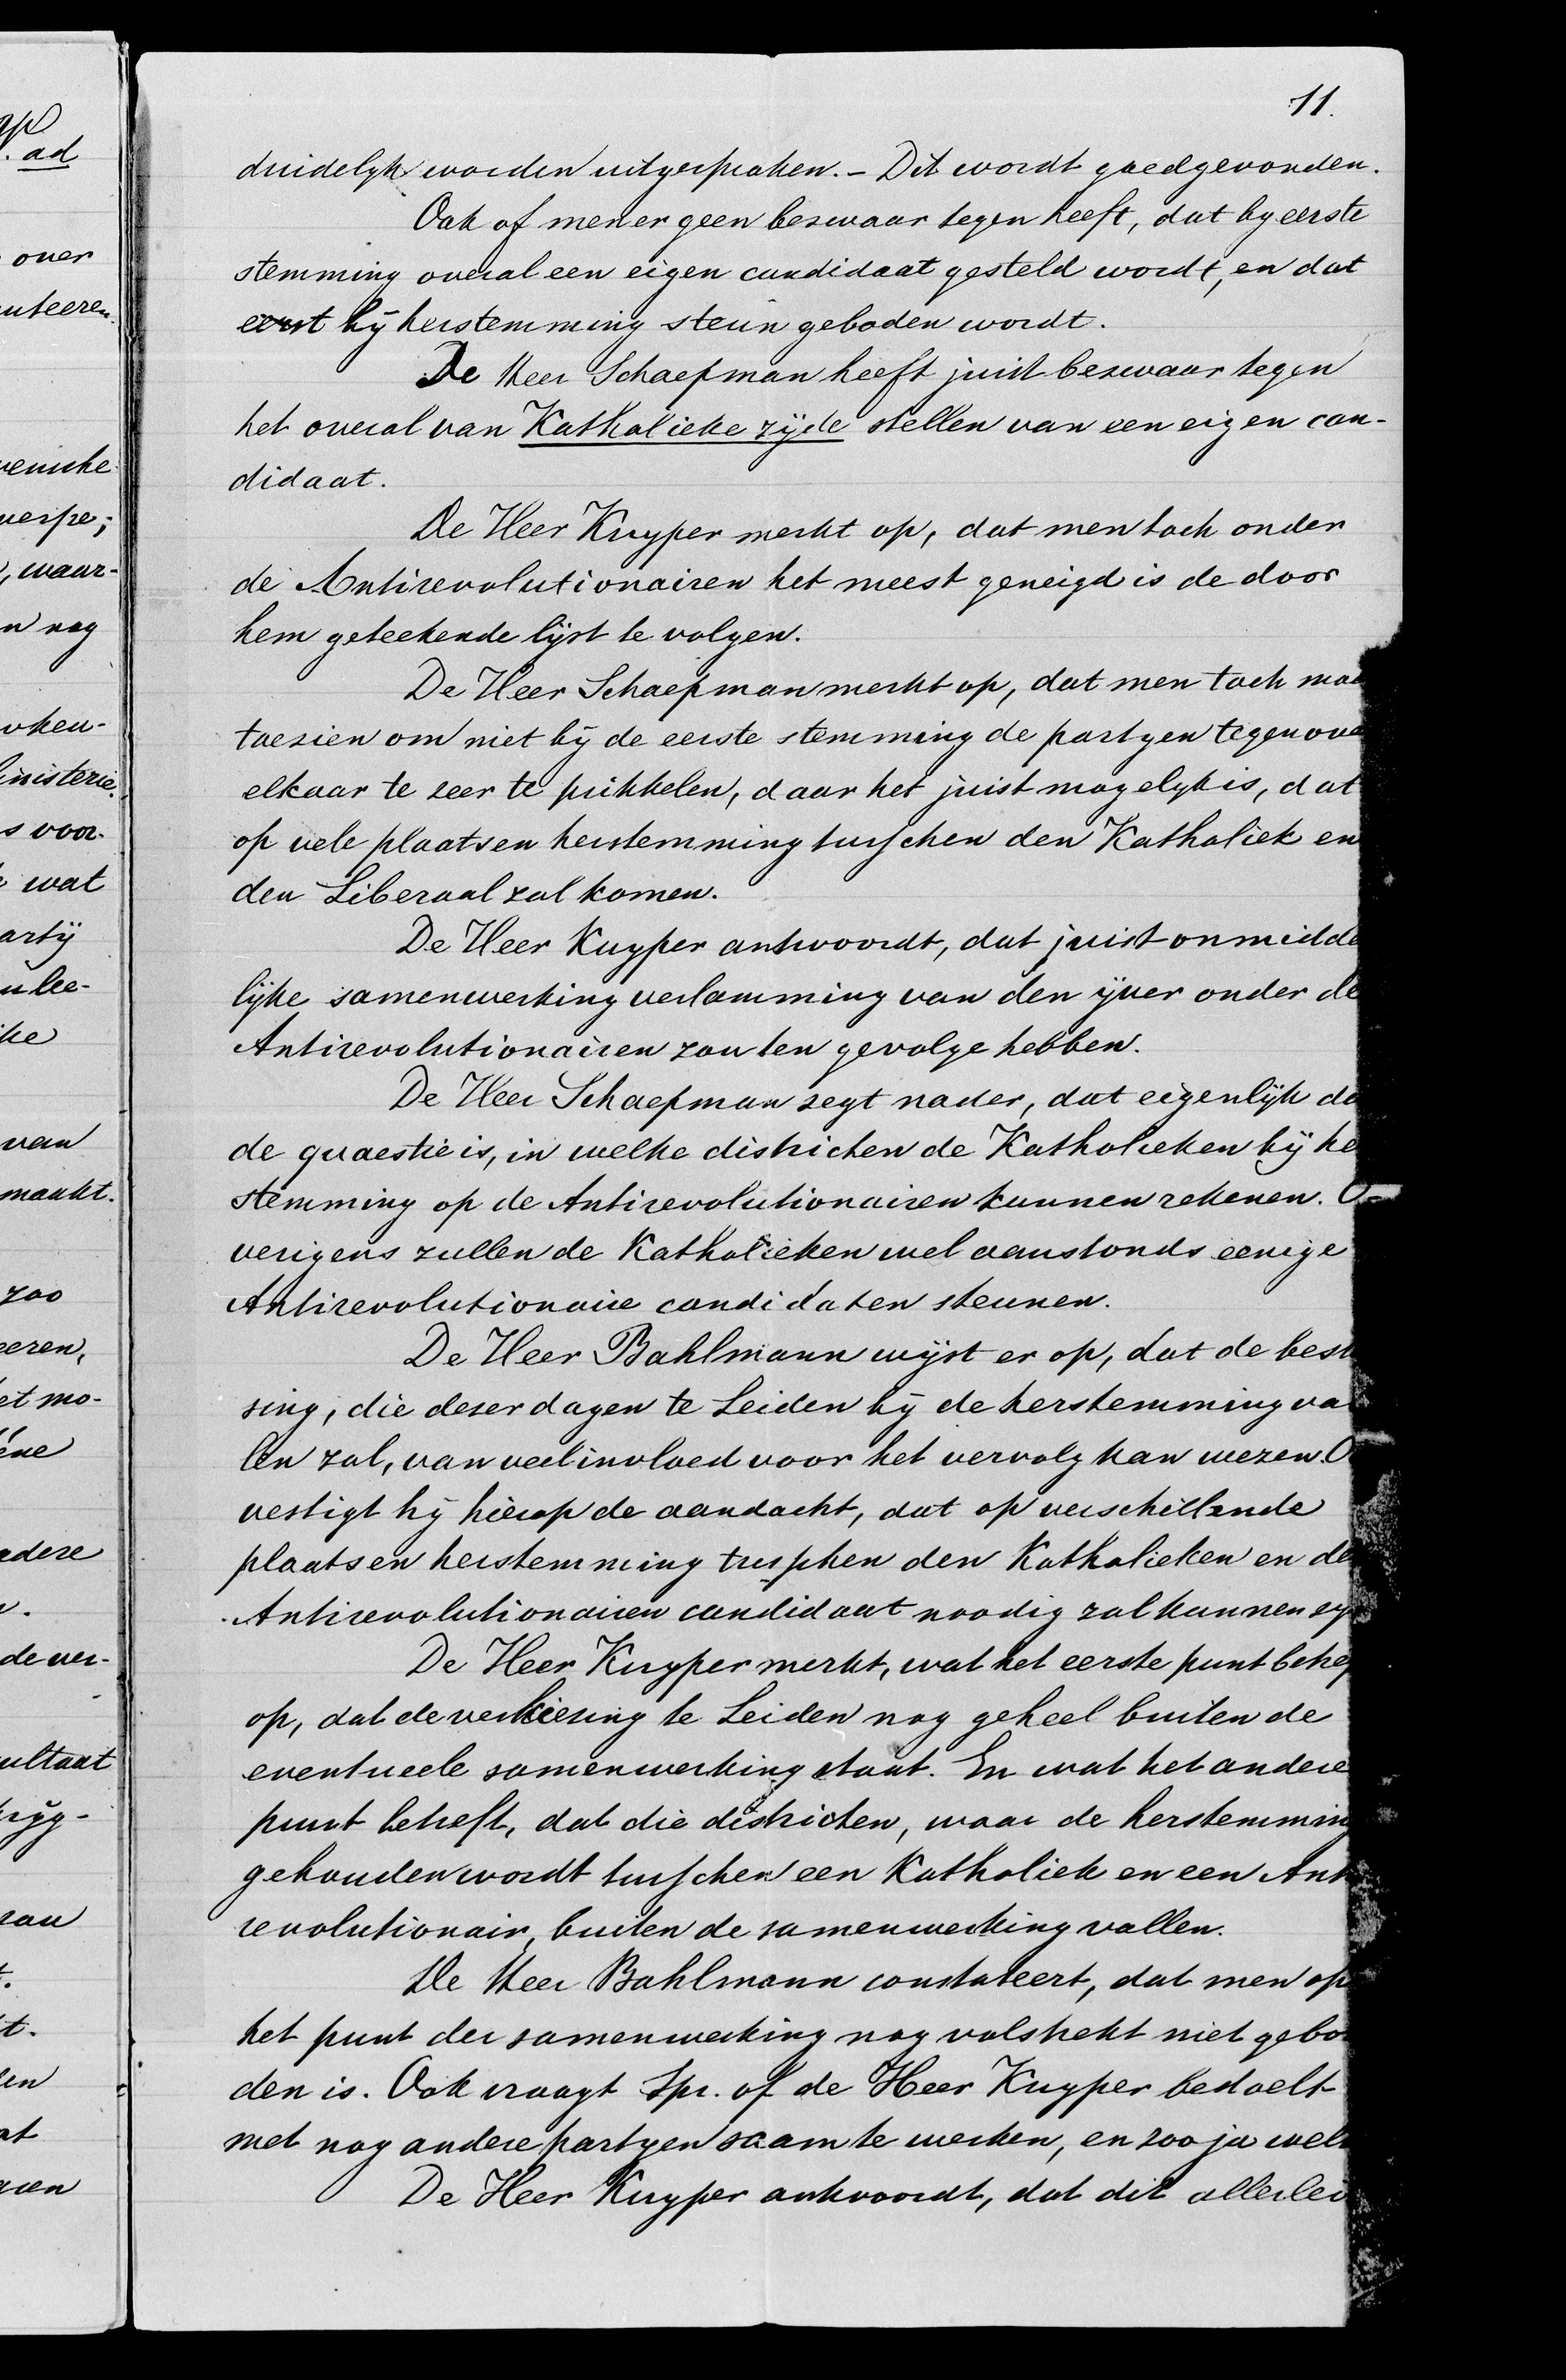 11.
duidelijk worden uitgesproken. – Dit wordt goedgevonden.
Ook of men er geen bezwaar tegen heeft, dat bij eerste
stemming overal een eigen candidaat gesteld wordt, en dat
eerst bij herstemming steun geboden wordt.
De Heer Schaepman heeft juist bezwaar tegen
het overal van Katholieke zijde stellen van een eigen can-
didaat.
De Heer Kuyper merkt op, dat men toch onder
de Antirevolutionairen het meest geneigd is de door
hem geteekende lijst te volgen.
De Heer Schaepman merkt op, dat men toch moe
toezien om niet bij de eerste stemming de partijen tegenove
elkaar te zeer te prikkelen, daar het juist mogelijk is, dat
op vele plaatsen herstemming tusschen den Katholiek en
den Liberaal zal komen.
De Heer Kuyper antwoordt, dat juist onmidde
lijke samenwerking verlamming van den ijver onder de
Antirevolutionairen zou ten gevolge hebben.
De Heer Schaepman zegt nader, dat eigenlijk de
de quaestie is, in welke districten de Katholieken bij he
stemming op de Antirevolutionairen kunnen rekenen. O-
verigens zullen de Katholieken wel aanstonds eenige
Antirevolutionaire candidaten steunen.
De Heer Bahlmann wijst er op, dat de besl
sing, die dezer dagen te Leiden bij de herstemming va
len zal, van veel invloed voor het vervolg kan wezen. O
vestigt hij hierop de aandacht, dat op verschillende
plaatsen herstemming tusschen den Katholieken en de
Antirevolutionairen candidaat noodig zal kunnen zij
De Heer Kuyper merkt, wat het eerste punt betre
op, dat de verkiezing te Leiden nog geheel buiten de
eventueele samenwerking staat. En wat het andere
punt betreft, dat die districten, waar de herstemming
gehouden wordt tusschen een Katholiek en een Ant
revolutionair, buiten de samenwerking vallen.
De Heer Bahlmann constateert, dat men op
het punt der samenwerking nog volstrekt niet gebo
den is. Ook vraagt Spr. of de Heer Kuyper bedoelt
met nog andere partijen saam te werken, en zoo ja welk
De Heer Kuyper antwoordt, dat dit allerlei